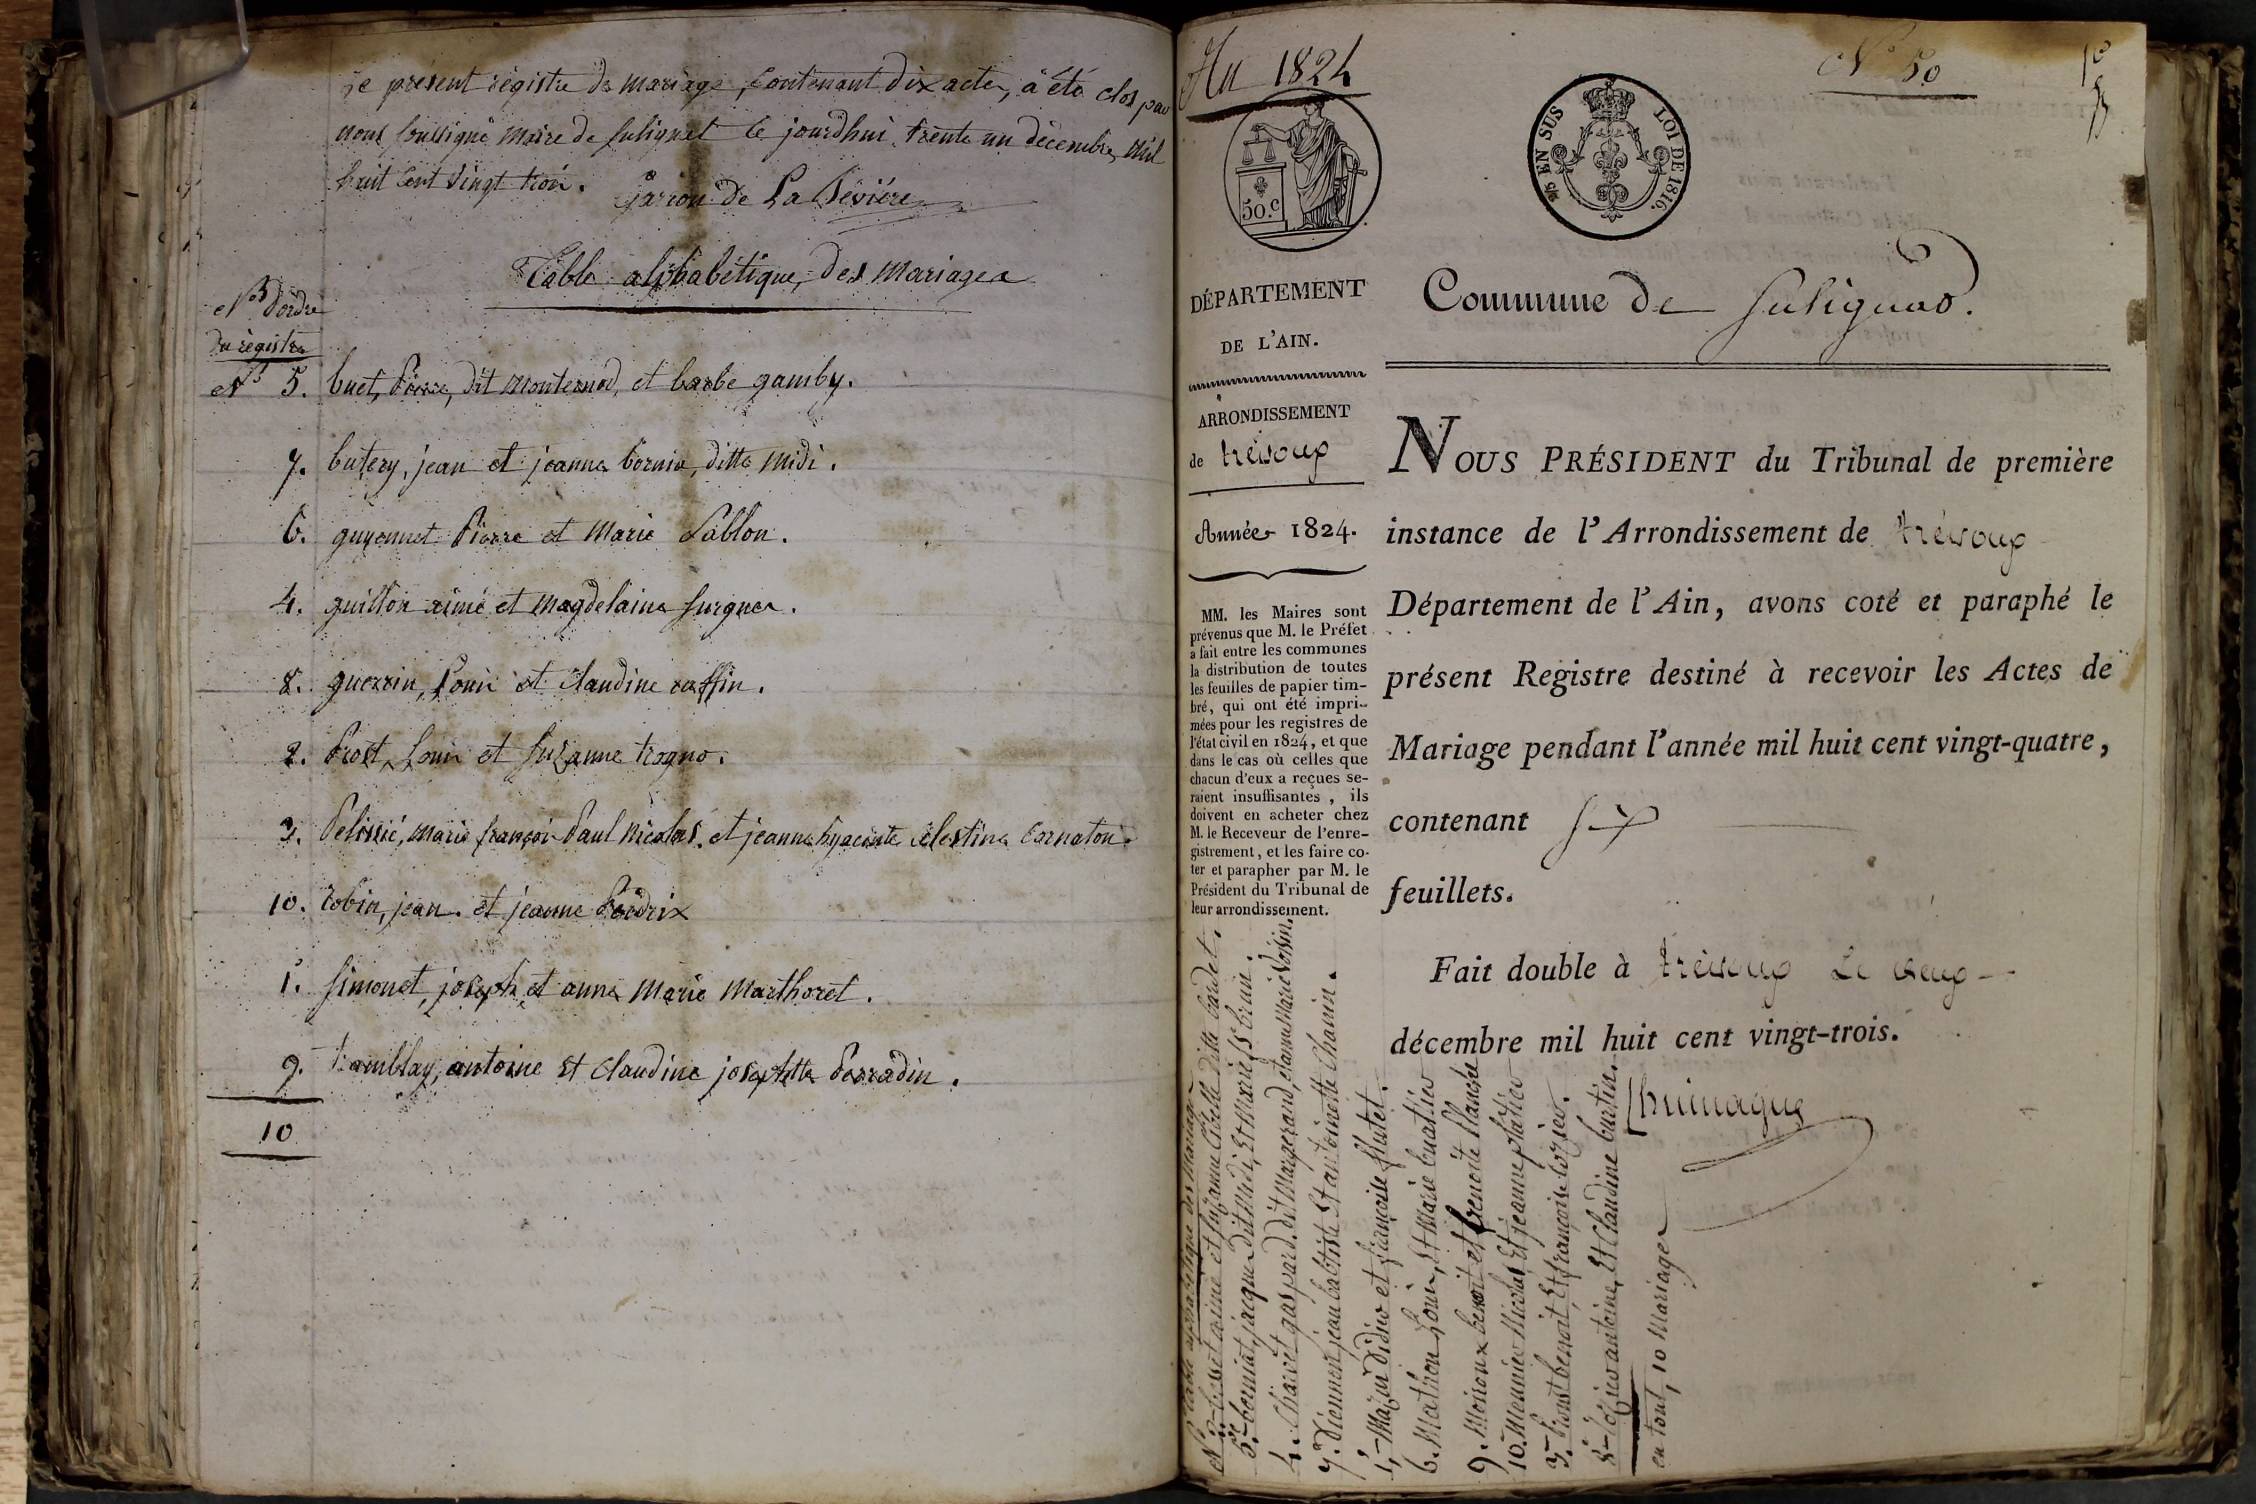 Le présent régistre de mariage, contenant dix actes, a été clos par
nous soussigné maire de Sulignat le jourdhui trente un décembre, mil
huit cent vingt trois.
Garron de La Bévière
Table alphabétique, des Mariages
Nos d'ordre
du régistre
Nos 5. buet, Pierre, dit Monternod, et barbe gamby.
7. butery, jean et jeanne bornia, ditte midi.
6. guyennet Pierre et Marie Sablon.
4. guillon aimé et Magdelaine
8. guerrin, Louis et Claudine ruffin.
2. Prost, Louis et Suzanne trogno.
3. Pelissié, marie françois Paul Nicolas. et jeanne hyacinte Célestine Carnaton.
10. robin, jean. et jeanne Perdrix
1. Simonet, joseph, et anne Marie Marthoret.
9. tramblay, antoine et Claudine josephtte Perradin.
10
An 1824
No 50
50.c
EN SUS
LOI DE 1816.
DÉPARTEMENT
DE L'AIN.
ARRONDISSEMENT
de trévoux
Année 1824.
MM. les Maires sont
prévenus que M. le Préfet
a fait entre les communes
la distribution de toutes
les feuilles de papier tim-
bré, qui ont été impri-
mées pour les registres de
l'état civil en 1824, et que
dans le cas où celles que
chacun d'eux a reçues se-
raient insuffisantes, ils
doivent en acheter chez
M. le Receveur de l'enre-
gistrement, et les faire co-
ter et parapher par M. le
Président du Tribunal de
leur arrondissement.
Commune de Sulignat.
NOUS PRÉSIDENT du Tribunal de première
instance de l'Arrondissement de trévoux
Département de l'Ain, avons coté et paraphé le
présent Registre destiné à recevoir les Actes de
Mariage pendant l'année mil huit cent vingt-quatre,
contenant six
feuillets.
Fait double à trévoux Le
décembre mil huit cent vingt-trois.
Table alphabétique des Mariages
aimé et Suzanne ditte bardet.
5. borniat, jacque dit Midi, Et Marie
4. Charvet gaspard. dit Margerand, et anne Marie Voisin.
7. Diennen jean baptiste Et antoinette Chanin.
1. Mazui Didier et françoise flutet.
6. Mathon Louis, Et Marie
9. Moiroux benoit et benoite Planche
10. Meunier Nicolas, Et jeanne
3. Prost benoit, Et françoise
8. antoine, Et Claudine burtin.
en tout, 10 Mariages